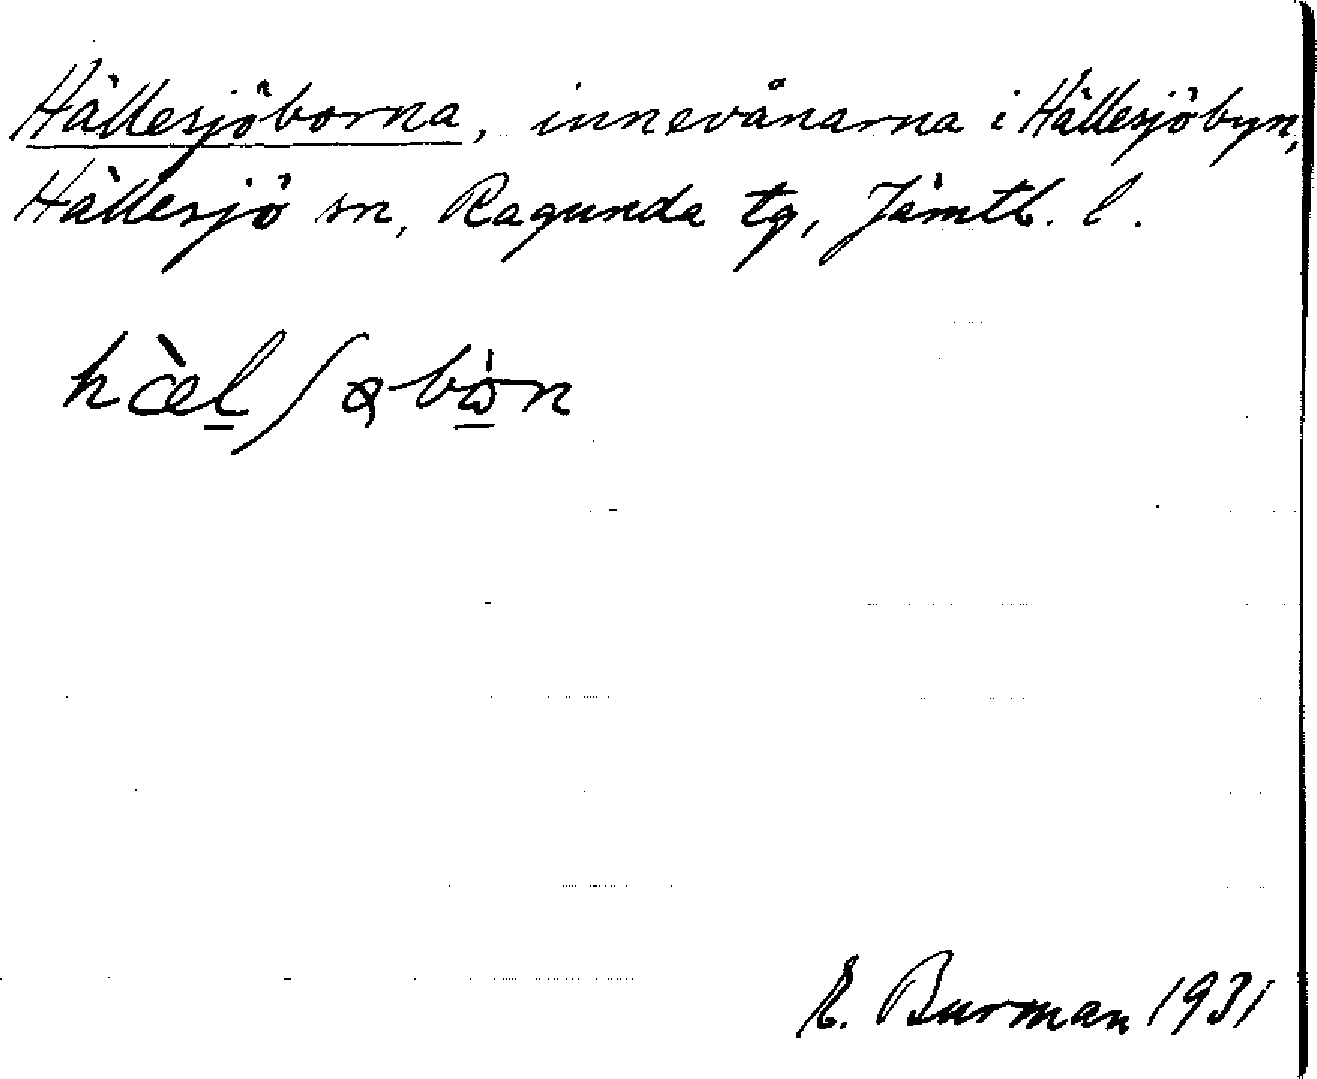 Hällesjöborna, innevånarna i Hällesjöbyn,
Hällesjö sn, Ragunda tg, Jämtl. l.
E. Burman 1931